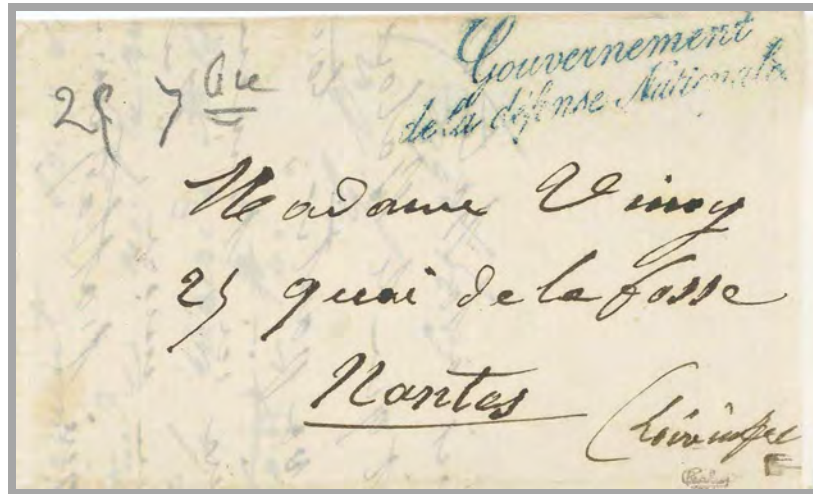 Gouvernement
de la défense Nationale
25 7bre
Madame Vinoy
25 quai de la fosse
Nantes
(Loire infre